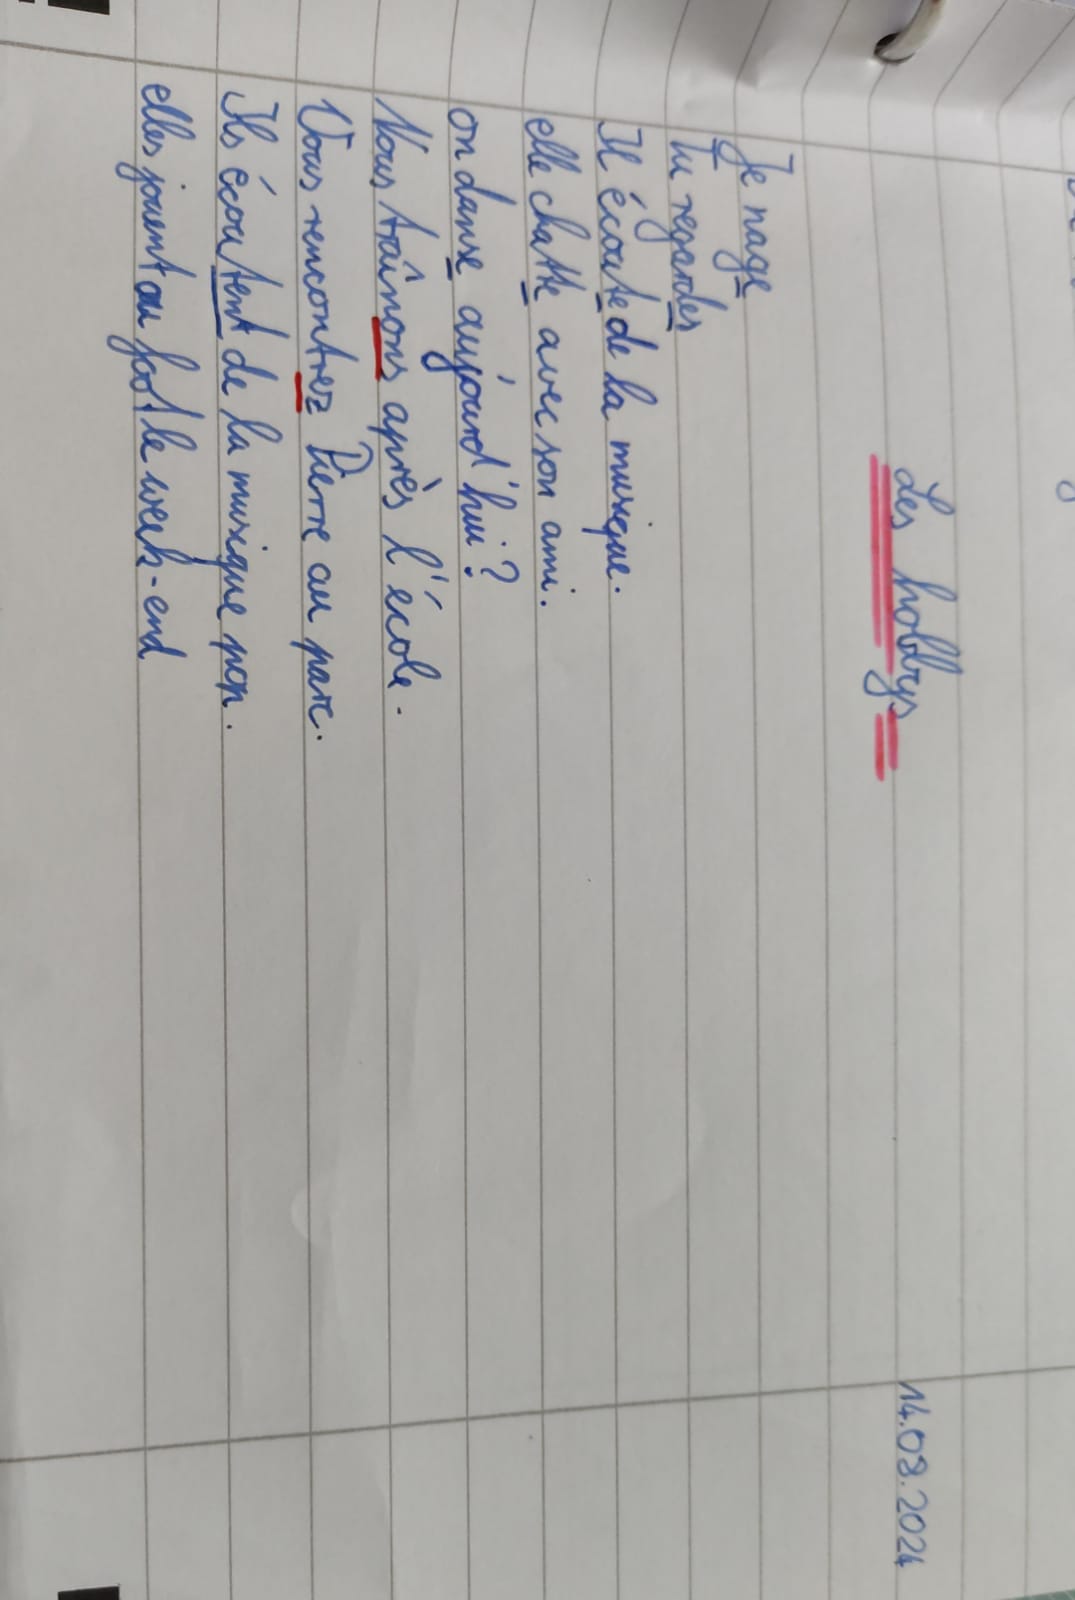 Les hobbys 14.08.2024
Je nage
Tu regardes
Il écoute de la musique.
elle chatte avec son ami.
on danse aujourd'hui?
Nous traînons après l'école.
Vous rencontrez Pierre au parc.
Ils écoutent de la musique pop.
elles jouent au foot le week-end